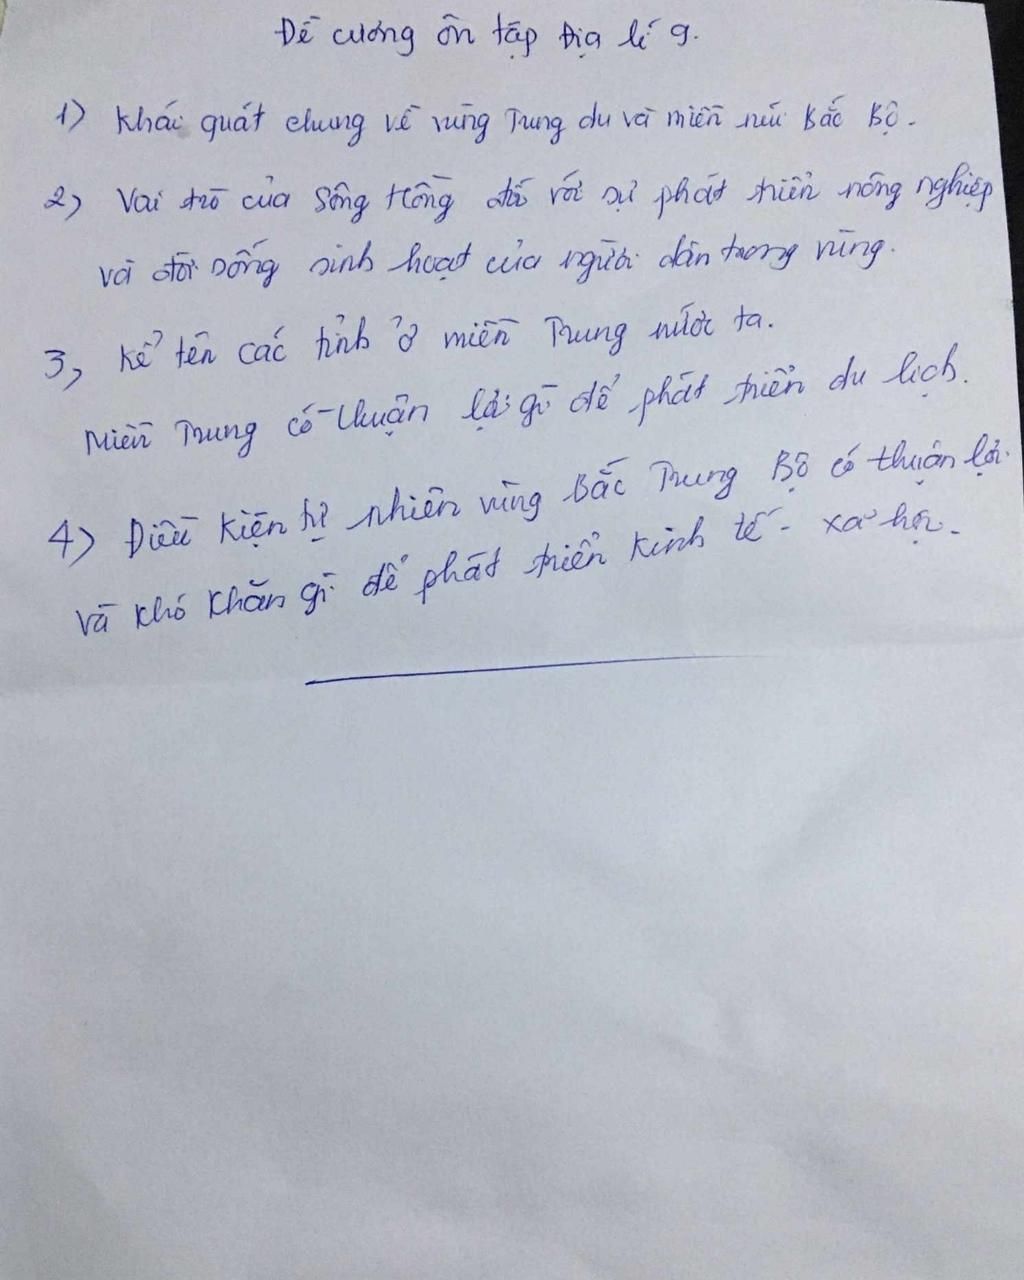 Đề cương ôn tập Địa lí 9.
1) Khái quát chung về vùng Trung du và miền núi Bắc Bộ.
2) Vai trò của Sông Hồng đối với sự phát triển nông nghiệp
và đời sống sinh hoạt của người dân trong vùng.
3, Kể tên các tỉnh ở miền Trung nước ta.
Miền Trung có thuận lợi gì để phát triển du lịch.
4) Điều kiện tự nhiên vùng Bắc Trung Bộ có thuận lợi
và khó khăn gì để phát triển kinh tế - xã hội.